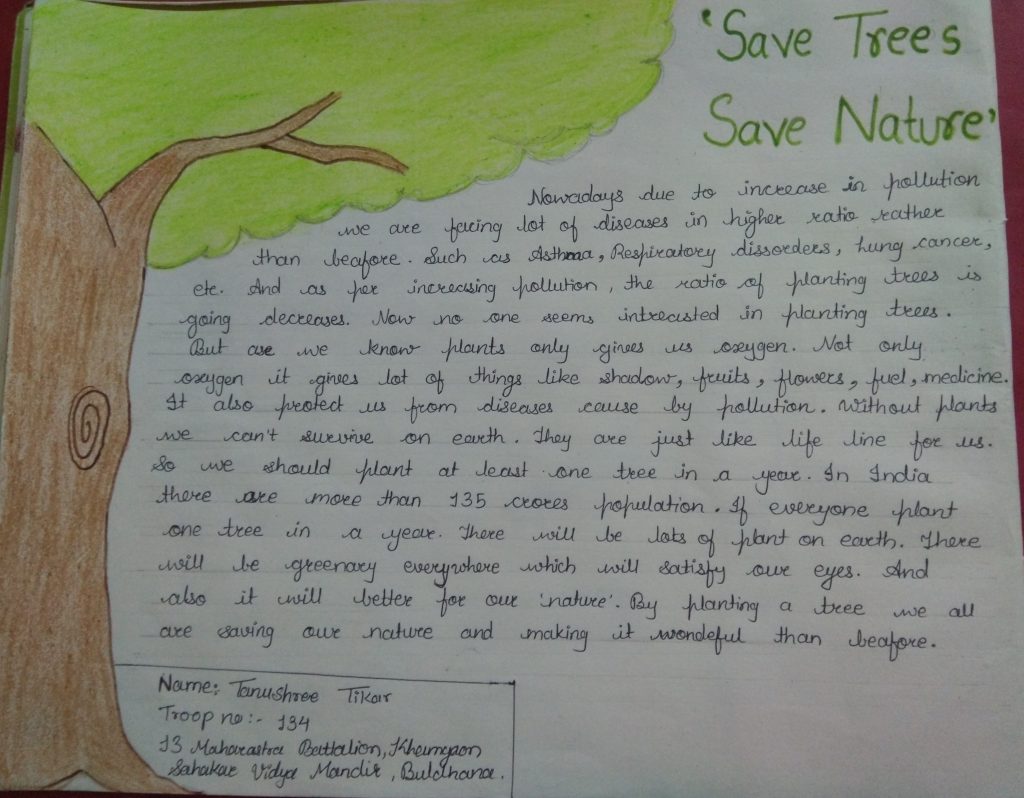 'Save Trees
Save Nature'
Nowadays due to increase in pollution
we are facing lot of diseases in higher ratio rather
than beafore. Such as Asthma, Respiratory dissorders, lung cancer,
etc. And as per increasing pollution, the ratio of planting trees is
going decreases. Now no one seems intrecisted in planting trees.
But as we know plants only gives us oxygen. Not only
oxygen it gives lot of things like shadow, fruits, flowers, fuel, medicine.
It also protect us from diseases cause by pollution. Without plants
we can't survive on earth. They are just like life line for us.
So we should plant at least one tree in a year. In India
there are more than 135 crores population. If everyone plant
one tree in a year. There will be lots of plant on earth. There
will be greenary everywhere which will satisfy our eyes. And
also it will better for our 'nature'. By planting a tree we all
are saving our nature and making it wondeful than beafore.
Name: Tanushree Tikar
Troop no:- 134
13 Maharastra Battalion, Khamgaon
Sahakar Vidya Mandir, Buldhana.